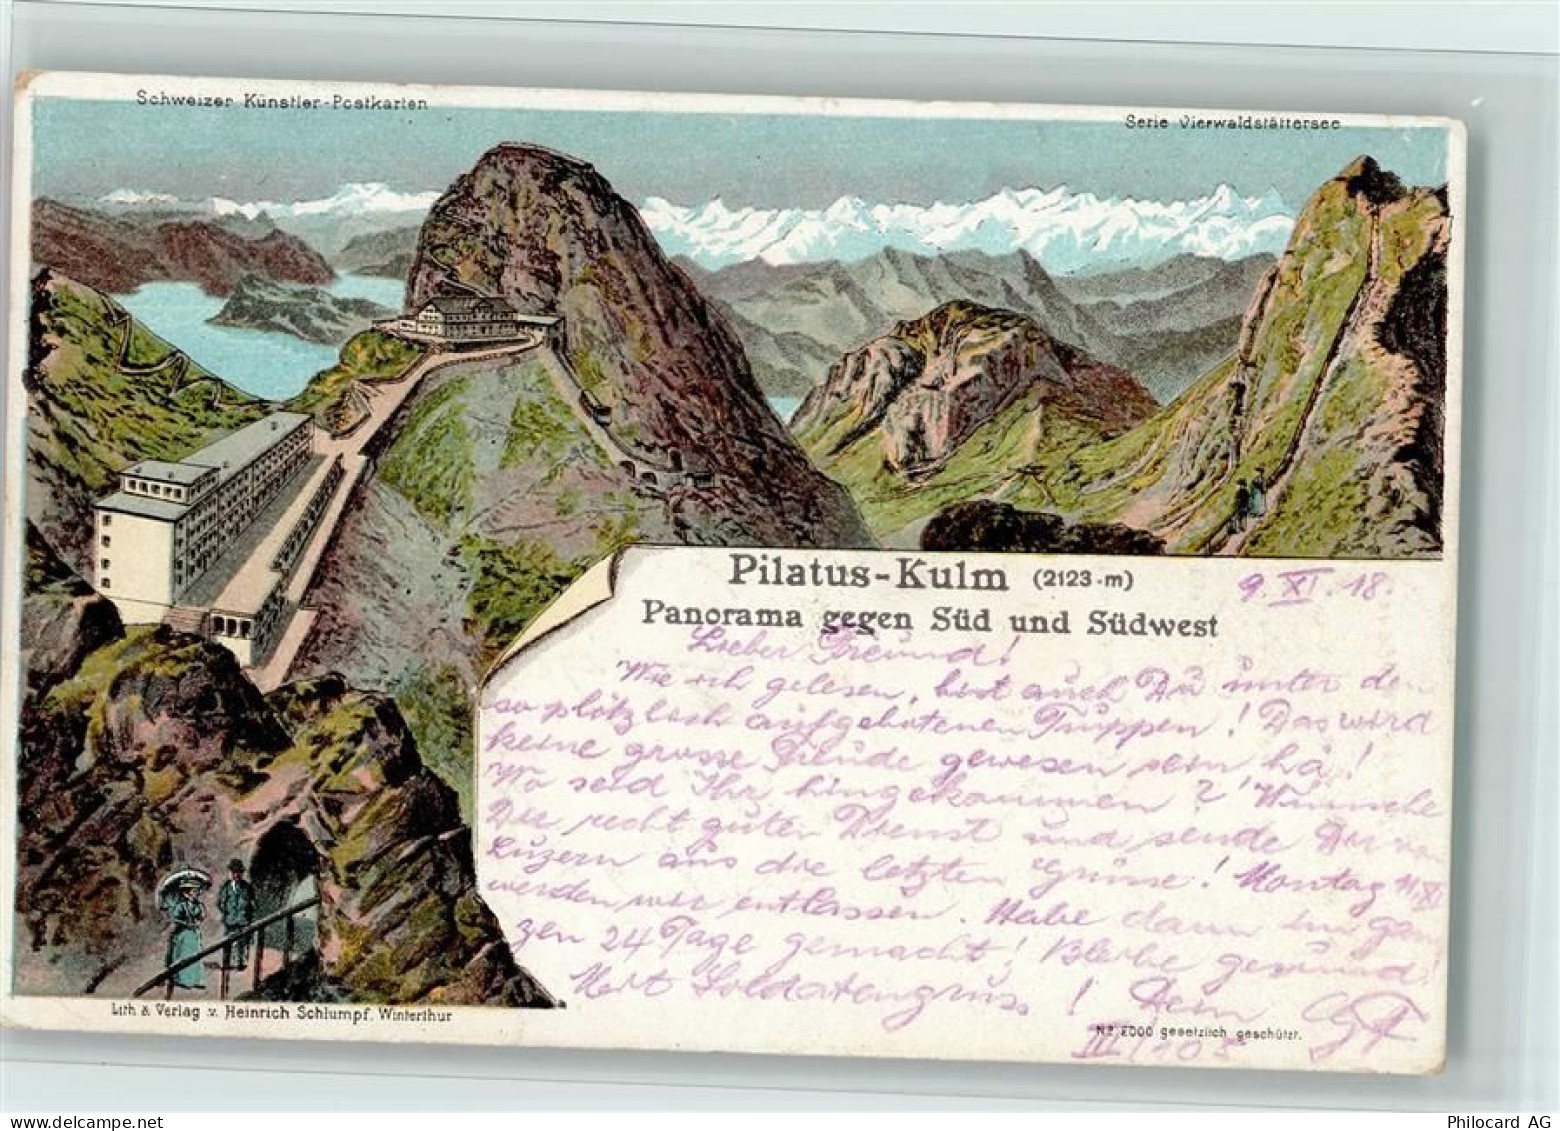 Schweizer Künstler-Postkarten
Serie Vierwaldstättersee
Pilatus-Kulm (2123 m)
9. XI. 18.
Panorama gegen Süd und Südwest
Lieber Freund!
Wie ich gelesen, bist auch Du unter den
so plötzlich aufgebotenen Truppen! Das wird
keine grosse Freude gewesen sein hä!
Wo seid Ihr hingekommen? Wünsche
Dir recht guten Dienst und sende Dir von
Luzern aus die letzten Grüsse! Montag 11. XI
werden wir entlassen. Habe dann im gan-
zen 24 Tage gemacht! Bleibe gesund!
Mit Soldatengruss! Dein
III/105
Lith. & Verlag v. Heinrich Schlumpf, Winterthur
No 2000 gesetzlich geschützt.
Philocard AG